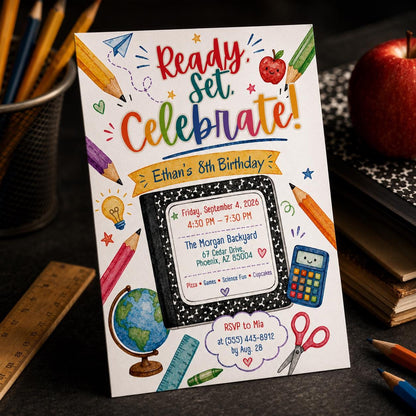 Ready,
Set,
Celebrate!
Ethan's 8th Birthday
Friday, September 4, 2026
4:30 PM – 7:30 PM
The Morgan Backyard
67 Cedar Drive,
Phoenix, AZ 85004
Pizza • Games • Science Fun • Cupcakes
RSVP to Mia
at (555) 443-8912
by Aug. 28